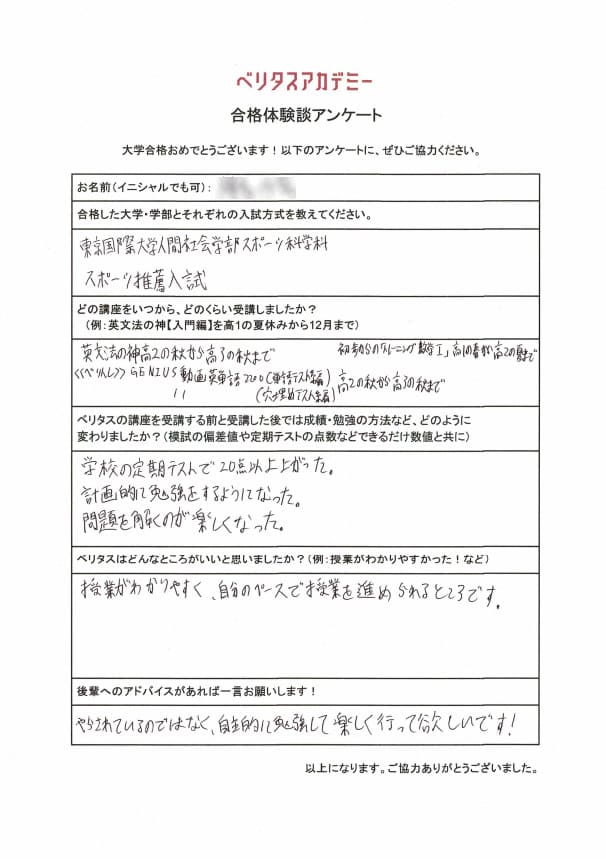 ベリタスアカデミー
合格体験談アンケート
大学合格おめでとうございます！以下のアンケートに、ぜひご協力ください。
お名前(イニシャルでも可)：
合格した大学・学部とそれぞれの入試方式を教えてください。
東京国際大学人間社会学部スポーツ科学科
スポーツ推薦入試
どの講座をいつから、どのくらい受講しましたか？
(例：英文法の神【入門編】を高1の夏休みから12月まで)
英文法の神高2の秋から高3の秋まで 初歩からのトレーニング数学Ⅰ」高1の春から高2の夏まで
《《べりたん》》GENIUS動画英単語2200(単語テスト編) 高2の秋から高3の秋まで
〃 (穴埋めテスト編)
ベリタスの講座を受講する前と受講した後では成績・勉強の方法など、どのように
変わりましたか？(模試の偏差値や定期テストの点数などできるだけ数値と共に)
学校の定期テストで20点以上上がった。
計画的に勉強をするようになった。
問題を解くのが楽しくなった。
ベリタスはどんなところがいいと思いましたか？(例：授業がわかりやすかった！など)
授業がわかりやすく、自分のペースで授業を進められるところです。
後輩へのアドバイスがあれば一言お願いします！
やらされているのではなく、自主的に勉強して楽しく行って欲しいです！
以上になります。ご協力ありがとうございました。